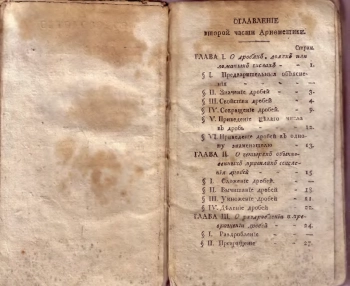 ОГЛАВЛЕНІЕ
второй части Ариѳметики.
Стран.
ГЛАВА I. О дробяхъ, доляхъ или
ломаныхъ числахъ - 1.
§ I. Предварительныя объясне-
нія — —
§ II. Значеніе дробей - 3.
§ III. Свойства дробей - 4.
§ IV. Сокращеніе дробей. - 9.
§ V. Приведеніе цѣлаго числа
въ дробь - 12.
§ VI. Приведеніе дробей къ одно-
му знаменателю - 13.
ГЛАВА II. О четырехъ
дѣйствія дробей - 15
§ I. Сложеніе дробей. - —
§ II. Вычитаніе дробей -
§ III. Умноженіе дробей -
§ IV. Дѣленіе дробей - 22.
ГЛАВА III. О раздробленіи и пре-
вращеніи дробей - 24.
§ I. Раздробленіе. - —
§ II. Превращеніе - 27.